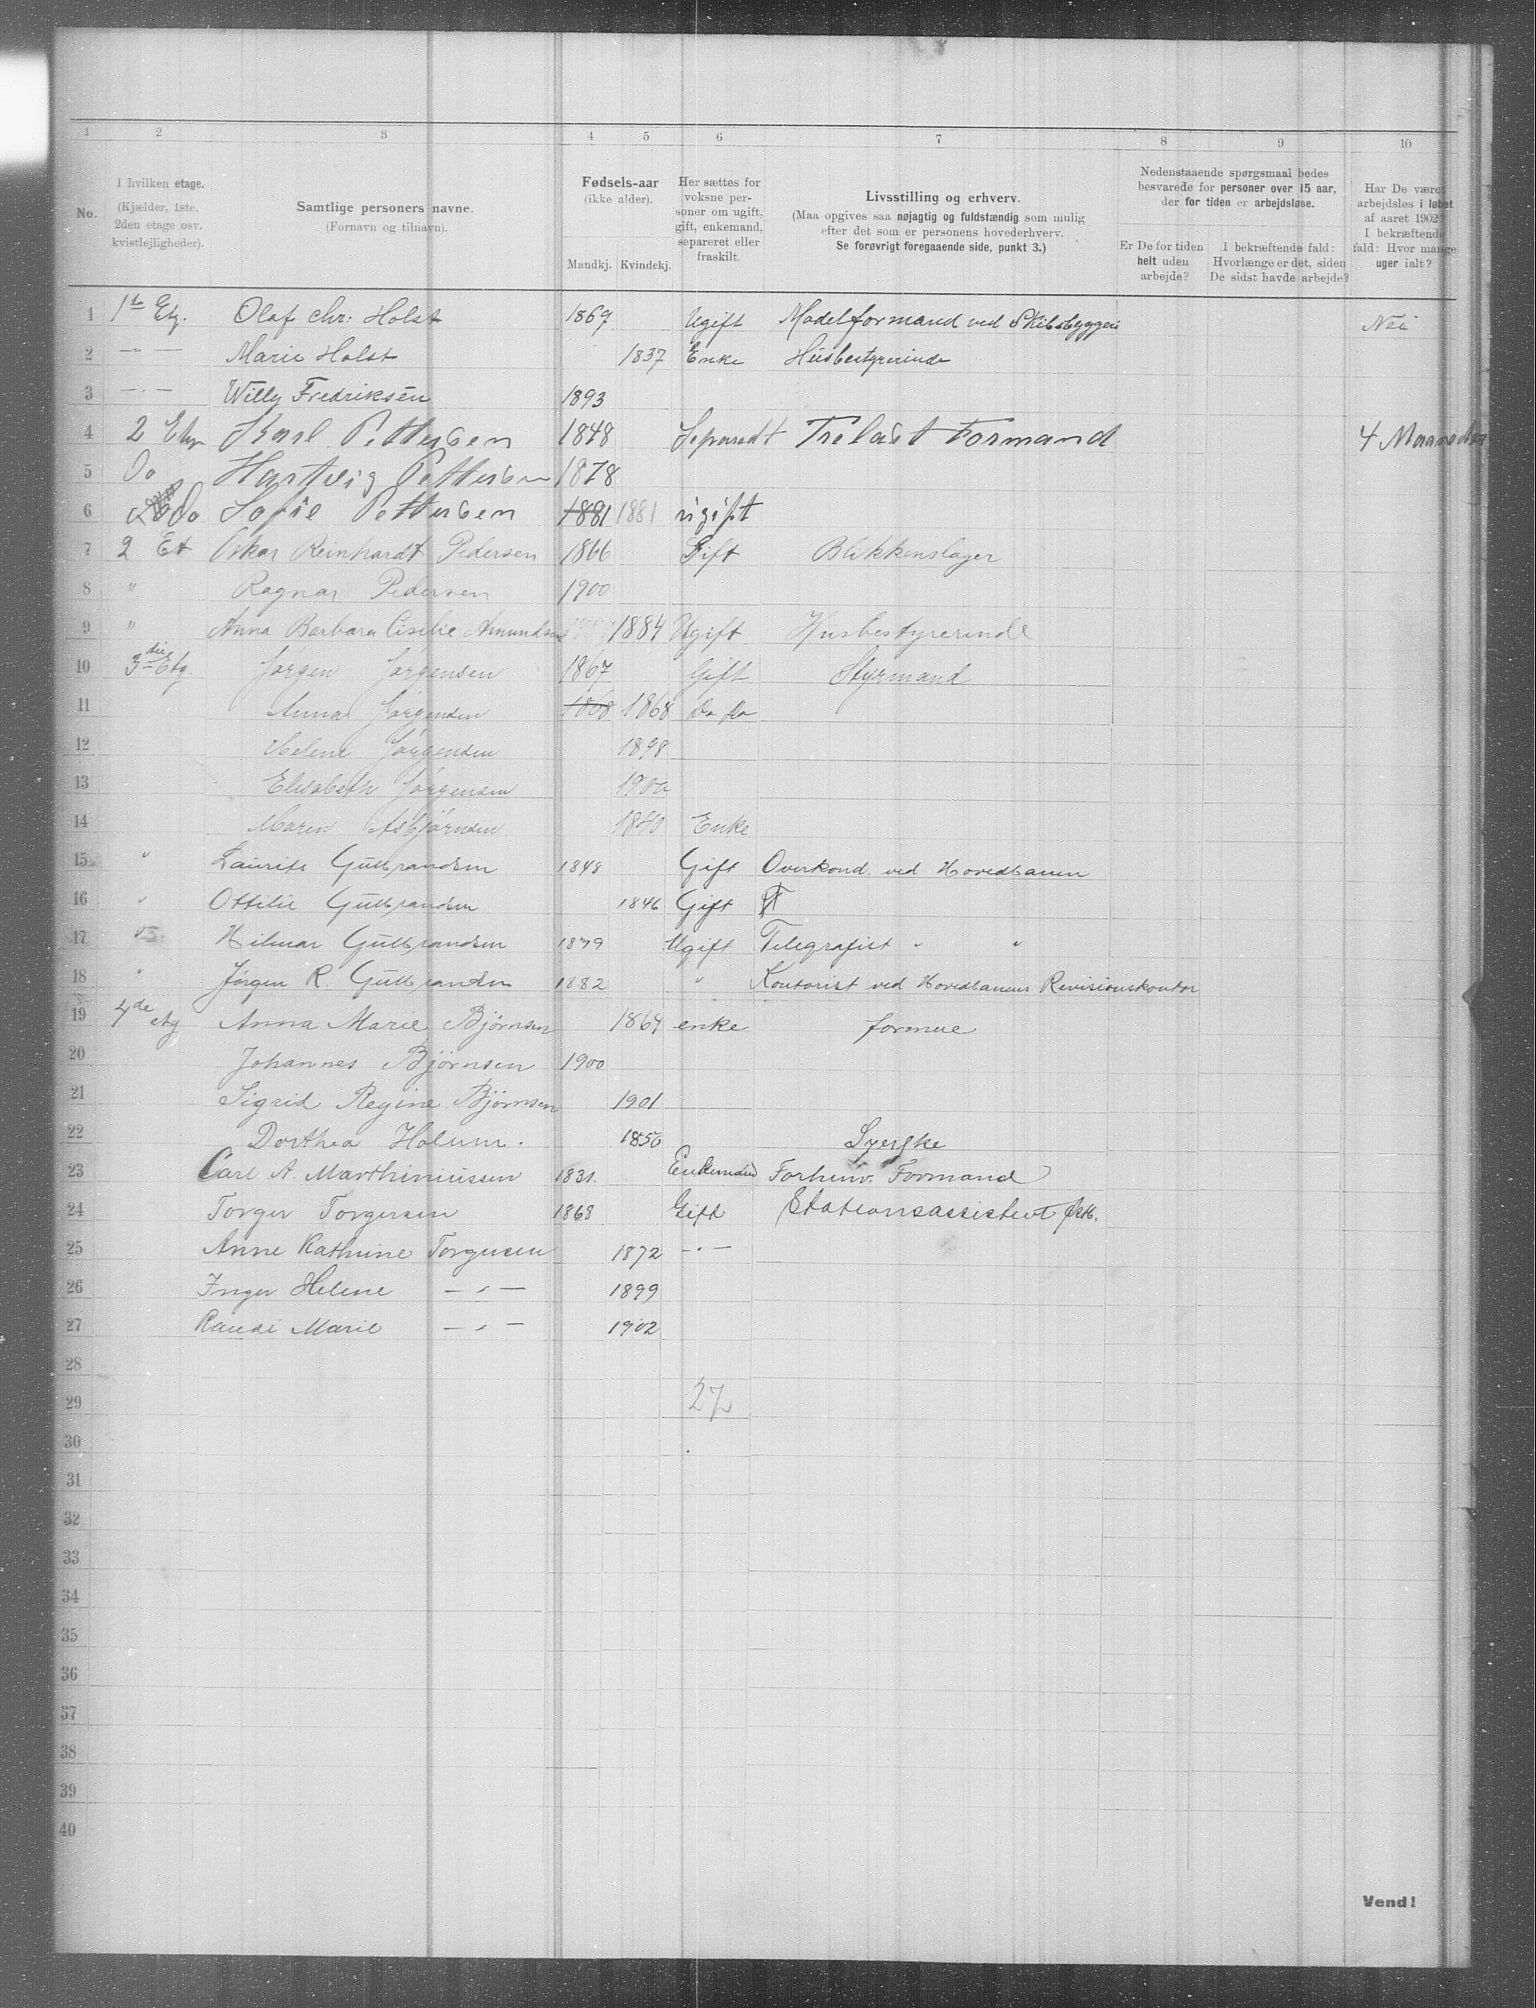 1 2 3 4 5 6 7 8 9 10
No.
I hvilken etage.
(Kjælder, 1ste,
2den etage osv.
kvistlejligheder).
Samtlige personers navne.
(Fornavn og tilnavn).
Fødsels-aar
(ikke alder).
Mandkj. Kvindekj.
Her sættes for
voksne per-
soner om ugift,
gift, enkemand,
separeret eller
fraskilt.
Livsstilling og erhverv.
(Maa opgives saa nøjagtig og fuldstændig som mulig
efter det som er personens hovederhverv.
Se forøvrigt foregaaende side, punkt 3.)
Nedenstaaende spørgsmaal bedes
besvarede for personer over 15 aar,
der for tiden er arbejdsløse.
Er De for tiden
helt uden
arbejde?
I bekræftende fald:
Hvorlænge er det, siden
De sidst havde arbejde?
Har De været
arbejdsløs i løbet
af aaret 1902?
I bekræftende
fald: Hvor mange
uger ialt?
1 1ste Etg. Olaf Chr: Holst 1869 Ugift Modelformand ved Skibsbyggeri Nei
2 — " — Marie Holst 1837 Enke Husbestyrerinde
3 — " — Willy Fredriksen 1893
4 2 Etg Karl Pettersen 1848 Separedt Trelast Formand 4 Maaneder
5 Do Hartvig Pettersen 1878
6 Do Sofie Pettersen 1881 1881 ugift
7 2 Et Oskar Reinhardt Pedersen 1866 Gift Blikkenslager
8 " Ragnar Pedersen 1900
9 " Anna Barbara Cisilie Amundsen 1884 Ugift Husbestyrerinde
10 3die Etg. Jørgen Jørgensen 1867 Gift Styrmand
11 Anna Jørgensen 1868 1868 Do Do
12 Helene Jørgensen 1898
13 Elisabeth Jørgensen 1900
14 Maren Asbjørnsen 1840 Enke
15 " Laurits Gulbrandsen 1848 Gift Overkond. ved Hovedbanen
16 " Ottilie Gulbrandsen 1846 Gift
17 " Hilmar Gulbrandsen 1879 Ugift Telegrafist " "
18 " Jørgen R. Gulbrandsen 1882 " Kontorist ved Hovedbanens Revisionskontor
19 4de etg Anna Marie Bjørnsen 1864 enke formue
20 Johannes Bjørnsen 1900
21 Sigrid Regine Bjørnsen 1901
22 Dorthea Holum. 1850 Syerske
23 Carl A. Marthiniussen 1831. Enkemand Forhenv. Formand
24 Torger Torgersen 1868 Gift Stationsassistent
25 Anne Kathrine Torgersen 1872 — " —
26 Inger Helene — " — 1899
27 Randi Marie — " — 1902
28
29 27
30
31
32
33
34
35
36
37
38
39
40
Vend!